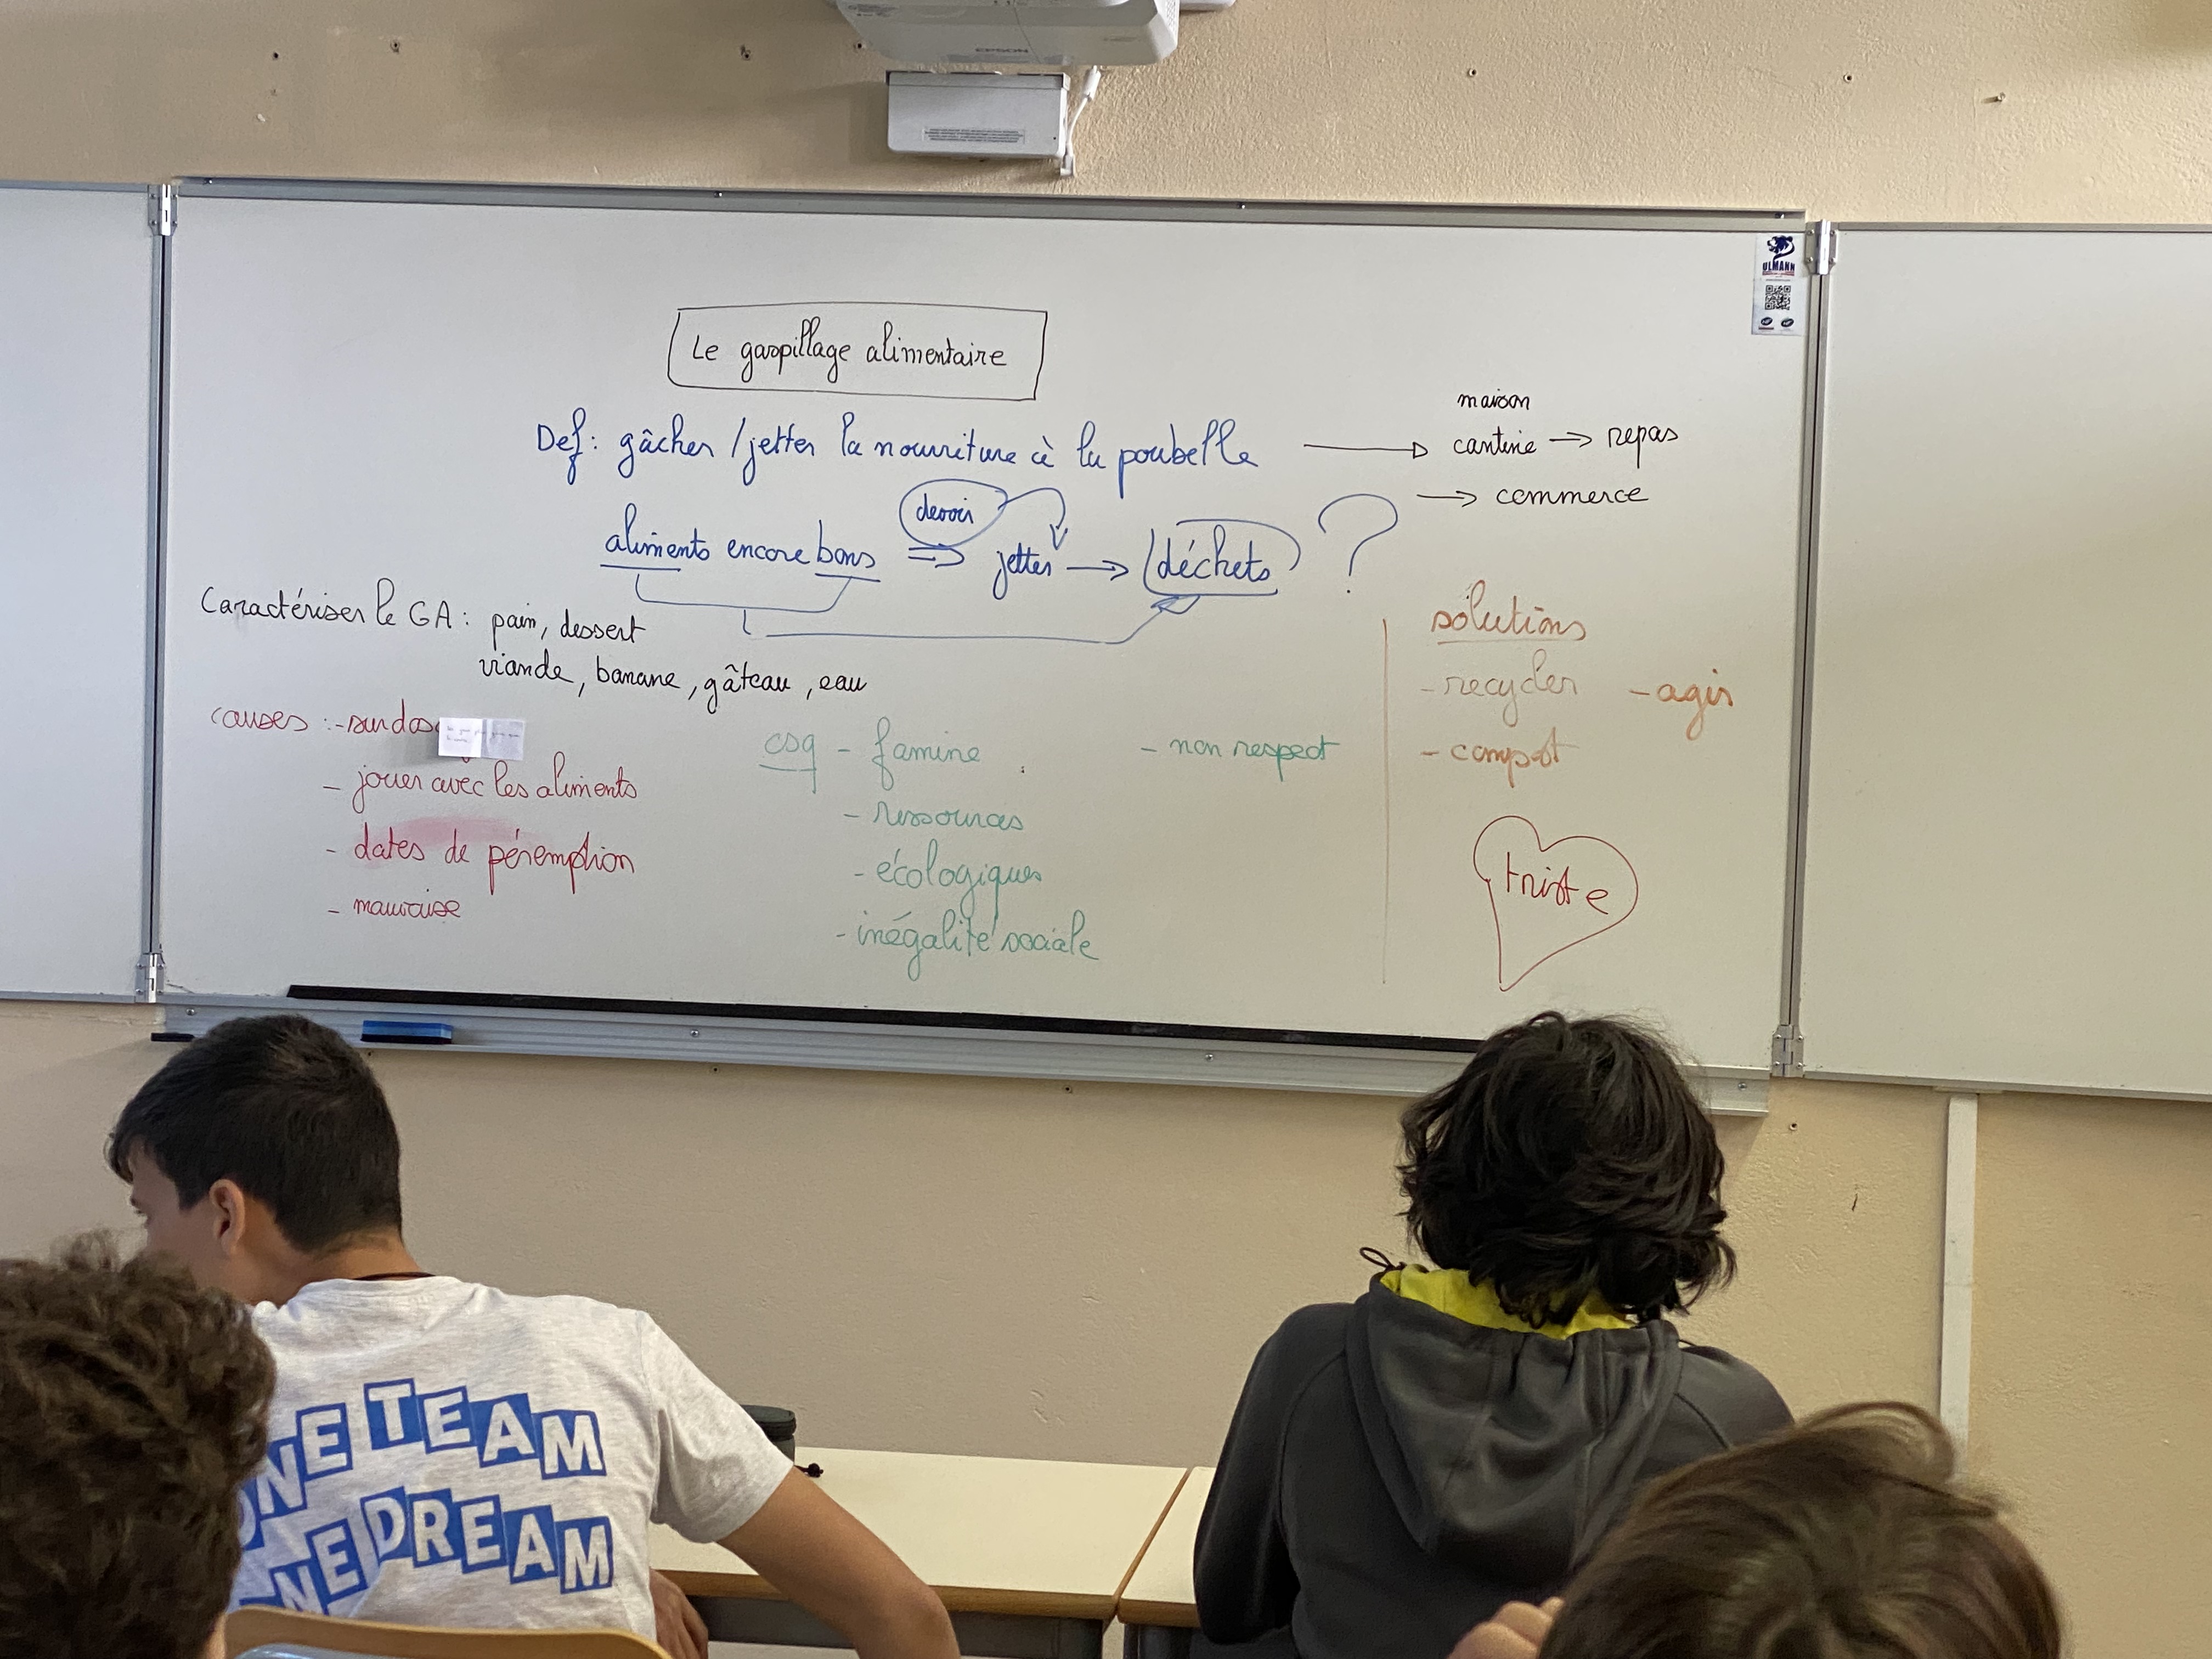 EPSON
ULMANN
Le gaspillage alimentaire
Def: gâcher / jetter la nourriture à la poubelle
maison
cantine → repas
→ commerce
devoir
aliments encore bons ⇒ jetter → déchets ?
Caractériser le GA: pain, dessert
viande, banane, gâteau, eau
causes: - surdos
- jouer avec les aliments
- dates de péremption
- mauvaise
csq - famine
- ressources
- écologiques
- inégalité sociale
- non respect
solutions
- recycler - agir
- compost
triste
ONE TEAM
ONE DREAM